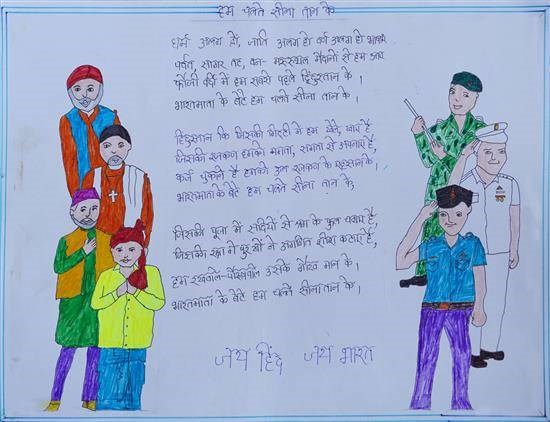 हम चलते सीना तान के
धर्म अलग हों, जाति अलग हो वर्ण अलग हो भाषाएँ
पर्वत, सागर तट, वन- मरुस्थल मैदानों से हम आएँ
फौजी वर्दी में हम सबसे पहले हिंदुस्तान के।
भारतमाता के बेटे हम चलते सीना तान के।
हिंदुस्तान कि जिसकी मिट्टी में हम खेले, खाए हैं,
जिसकी रजकण हमको ममता, समता से अपनाए हैं,
कर्ज चुकाने हैं हमको उन रजकण के एहसान के।
भारतमाता के बेटे हम चलते सीना तान के,
जिसकी पूजा में सदियों से श्रम के फूल चढ़ाए हैं,
जिसकी रक्षा में पुरखों ने अगणित शीश कटाए हैं,
हम रखवाले पौरुषवाले उसके गौरव मान के।
भारतमाता के बेटे हम चलते सीना तान के।
जय हिंद जय भारत